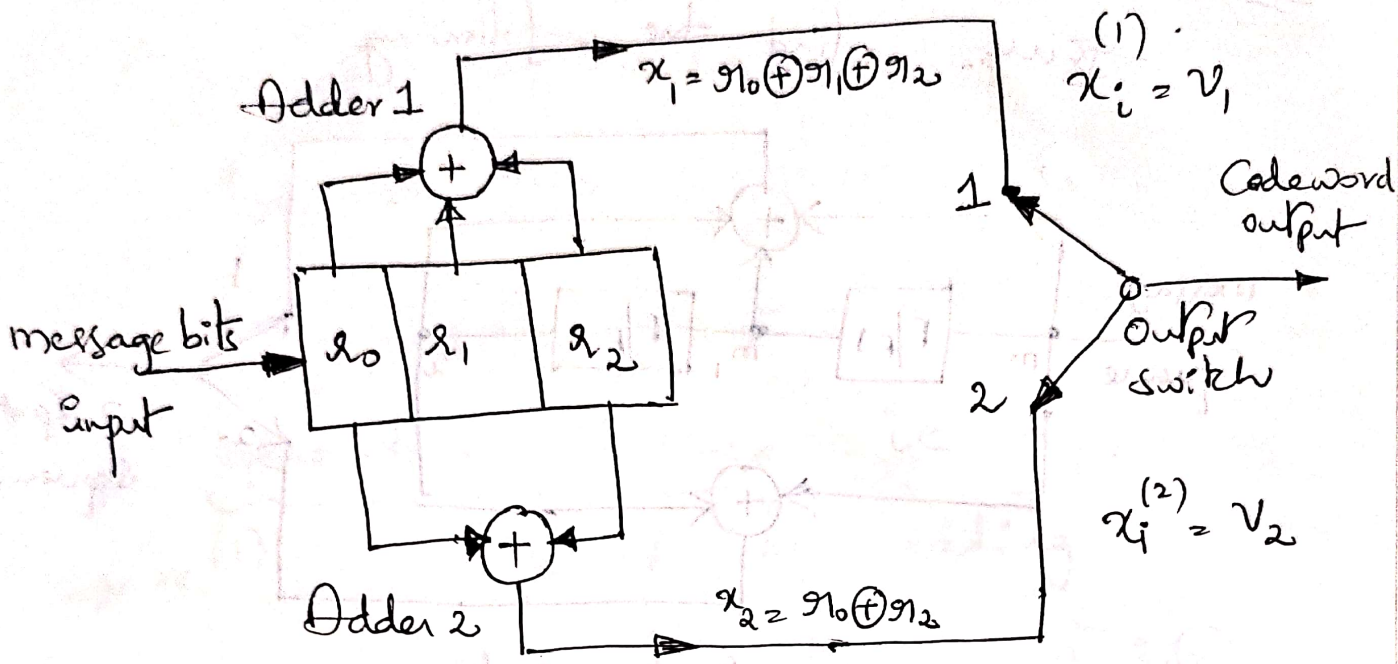 Adder 1
x₁ = r₀ ⊕ r₁ ⊕ r₂
xᵢ⁽¹⁾ = V₁
1
Codeword
output
+
message bits
input
r₀ r₁ r₂
output
switch
2
xᵢ⁽²⁾ = V₂
+
Adder 2
x₂ = r₀ ⊕ r₂